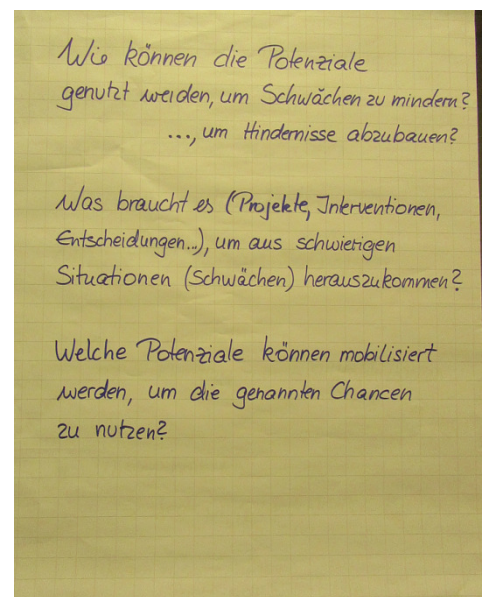 Wie können die Potenziale
genutzt werden, um Schwächen zu mindern?
..., um Hindernisse abzubauen?
Was braucht es (Projekte, Interventionen,
Entscheidungen...), um aus schwierigen
Situationen (Schwächen) herauszukommen?
Welche Potenziale können mobilisiert
werden, um die genannten Chancen
zu nutzen?